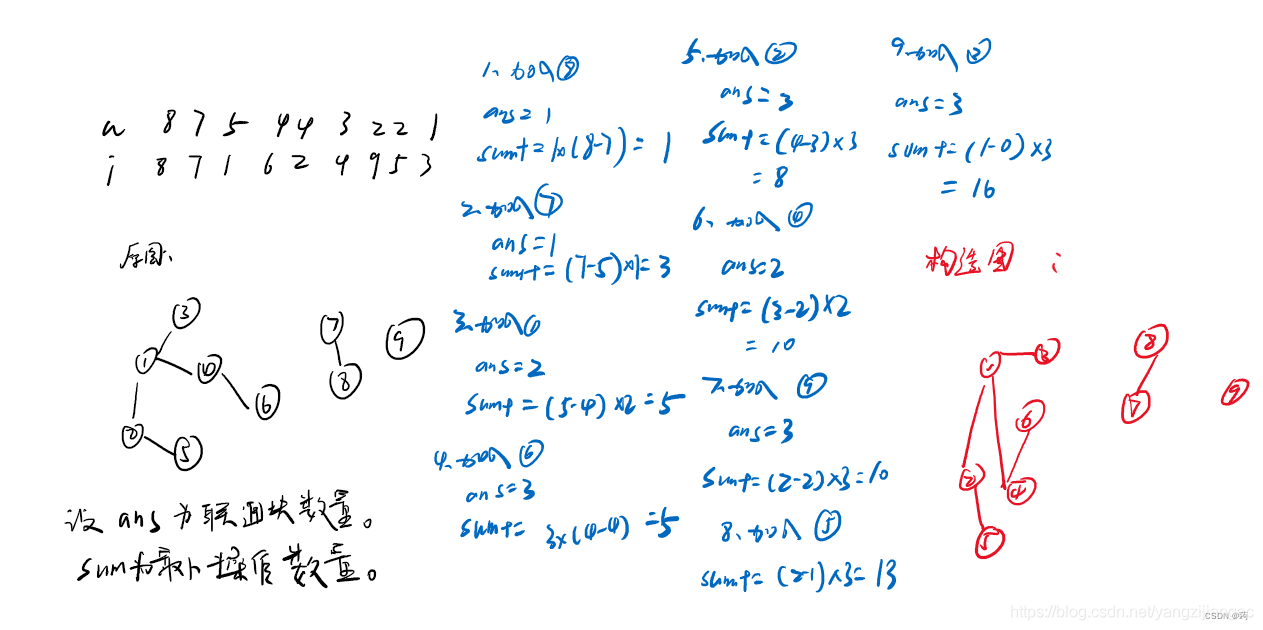 a 8 7 5 4 4 3 2 2 1
i 8 7 1 6 2 4 9 5 3
原图、
③
①
④
⑥
②
⑤
⑦
⑧
⑨
设 ans 为联通块数量。
sum为最小操作数量。
1、加入⑧
ans = 1
sum+=1x(8-7)= 1
2、加入⑦
ans=1
sum+=(7-5)x1=3
3、加入①
ans=2
sum+=(5-4)x2=5
4、加入⑥
ans=3
sum+= 3x(4-4) =5
5、加入②
ans=3
sum+=(4-3)x3
=8
6、加入④
ans=2
sum+=(3-2)x2
= 10
7、加入⑨
ans=3
sum+=(2-2)x3=10
8、加入⑤
sum+=(2-1)x3=13
9、加入③
ans=3
sum+=(1-0)x3
= 16
构造图：
①
③
⑥
②
④
⑤
⑧
⑦
⑨
https://blog.csdn.net/yangzijiangac